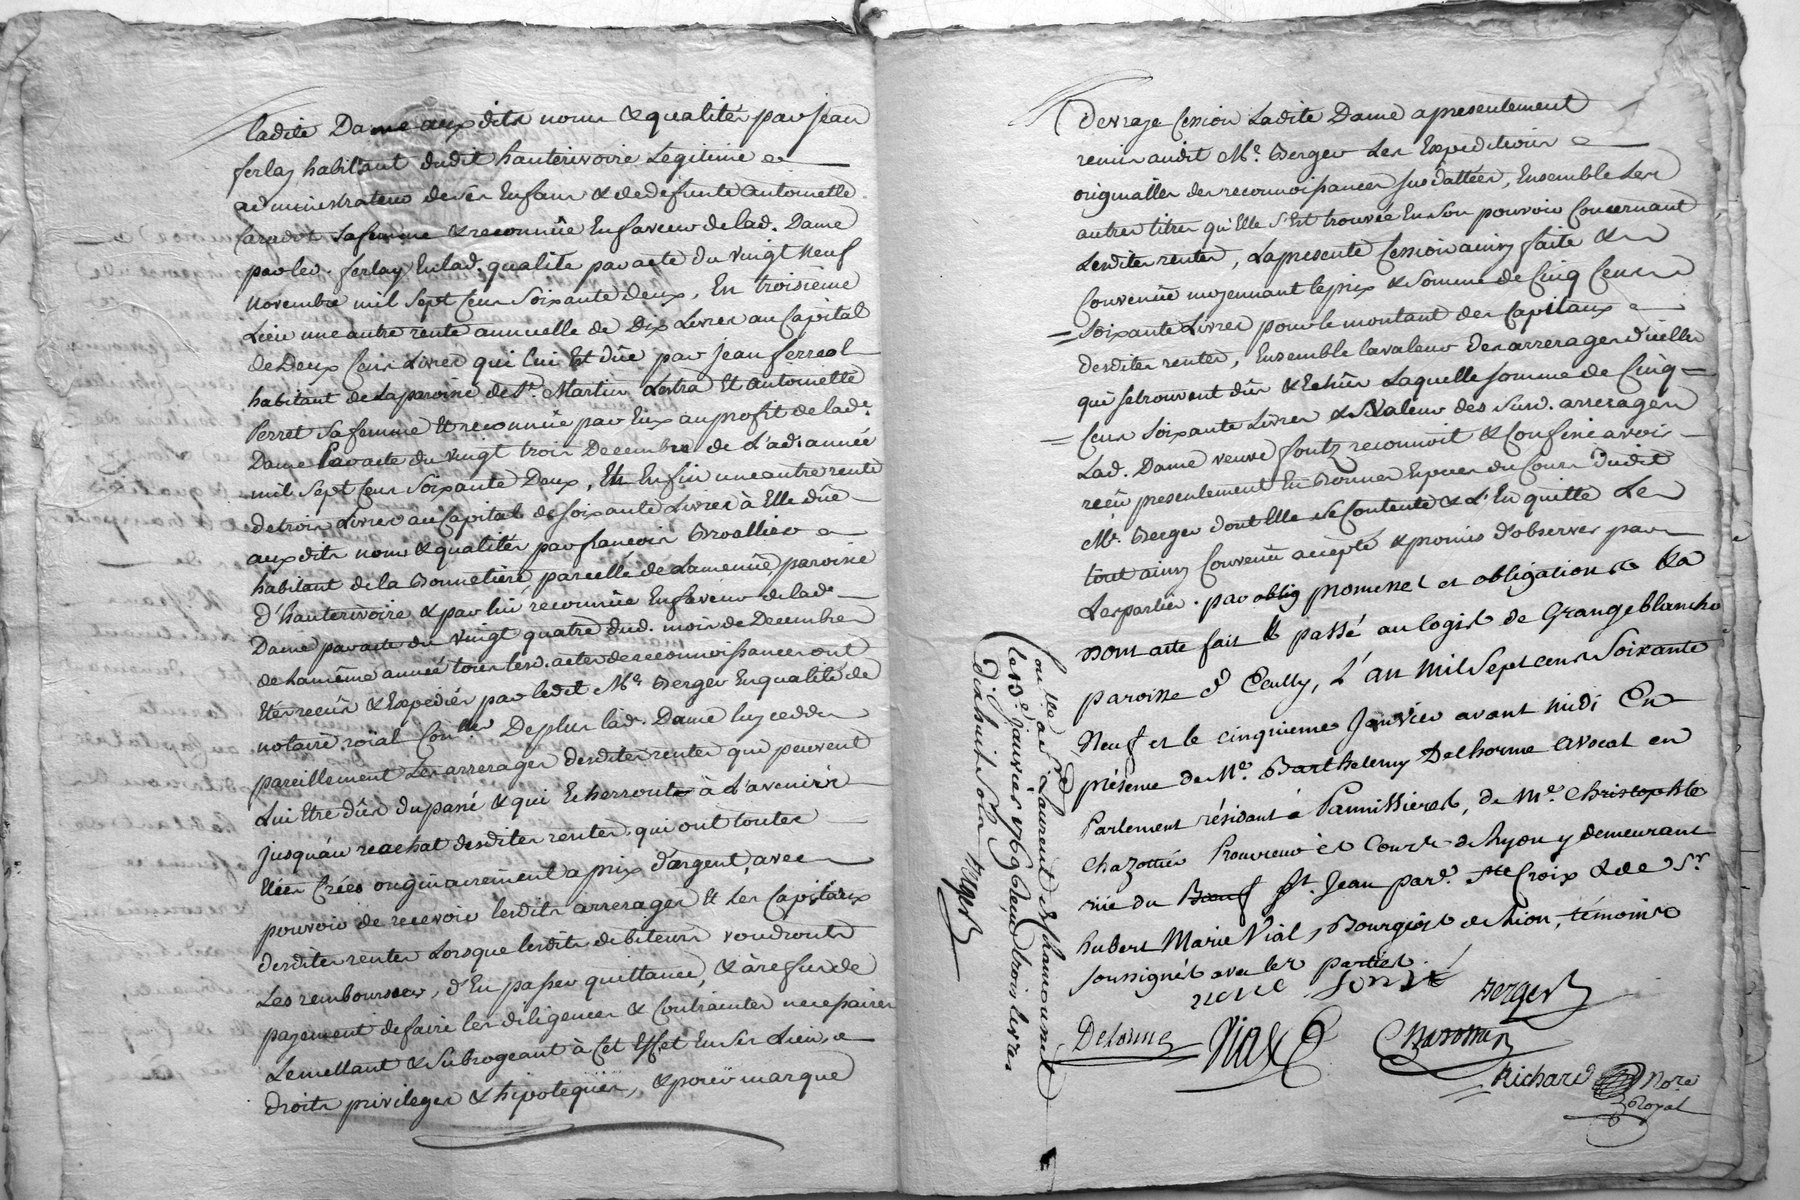 ladite Dame aux dits noms & qualités par jean
ferlay habitant dudit hauterivoire Legitime
administrateur de ses Enfans & de defunte antoinette
faradot sa femme & reconnüe En faveur de lad. Dame
par led. ferlay En lad. qualité par acte du vingt neuf
novembre mil sept Cens Soixante deux, En troisième
Lieu une autre rente annuelle de Dix Livres au Capital
de Deux Cens Livres qui lui Est düe par jean ferreol
habitant de La paroisse de St. Martin Lestra Et antoinette
Perret sa femme Et reconnüe par Eux au profit de lade.
Dame Par acte du vingt trois Decembre de L'ad. année
mil sept Cens soixante Deux, Et Enfin une autre rente
de trois Livres au Capital de soixante Livres à Elle düe
aux dits noms & qualités par francois Broallier
habitant de la Bonnetiere parcelle de Lamenüe, paroisse
D'hauterivoire & par lui reconnüe En faveur de lade.
Dame par acte du vingt quatre dud. mois de Decembre
de La même année tous lesd. actes de reconnoissances ont
Eté reçus & Expediés par ledit Me. Berger En qualité de
notaire roïal Con.ller De plus lade. Dame luy cedde
pareillement Les arrerages desdites rentes qui peuvent
Lui Etre düs du passé & qui Echerront à L'avenir
jusqu'au reachat desdites rentes qui ont toutes
Etées Créés originairement a prix d'argent, avec
pouvoir de recevoir lesdits arrerages Et Les Capitaux
desdites rentes Lorsque lesdits debiteurs voudront
Les rembourser, d'En passer quittance, & à refus de
payement de faire les diligences & Contraintes necessaires
Le mettant & Subrogeant à Cet Effet En ses Lieu,
droits privileges & hipoteques, & pour marque
De vraye Cession Ladite Dame a presentement
remis audit Me. Berger Les Expeditions
originalles des reconnoissances sus dattées, Ensemble Les
autres titres qu'Elle s'Est trouvée En son pouvoir Concernant
Lesdites rentes, La presente Cession ainsy faite &
Convenüe moyennant le prix & Somme de Cinq Cens
soixante Livres pour le montant des Capitaux
desdites rentes, Ensemble la valeur des arrerages d'icelles
qui se trouvent düs & Echüs Laquelle somme de Cinq
Cens soixante Livres & Valeur des susd. arrerages
Lad. Dame veuve Jontz reconnoit & Confesse avoir
reçü presentement En Bonnes Especes du Cours dudit
Me. Berger dont Elle se Contente & L'En quitte Le
tout ainsy Convenü accepté & promis d'observer par
Les parties. par oblig promesses et obligations &a
Dont acte fait & passé au logis de Grangeblanche
paroisse d'Ecully, L'an mil sept cens soixante
Neuf et le cinquieme Janvier avant midi En
présence de Me. Barthelemy Delhorme avocat en
Parlement résidant à Pannissieres, de Me. Christophle
Chazottier Procureur és Cours de Lyon y demeurant
rüe du Boeuf St. Jean par. Ste Croix & de Sr.
hubert Marie Vial, Bourgeois de Lion, témoins
soussignés avec les parties.
Berger
Delorme Vial Chazottier
Richard Nore
Royal
Con.lle a St. Laurent de Chamousset
le 13e. janvier 1769 Reçu trois livres
dix huit sols Berger